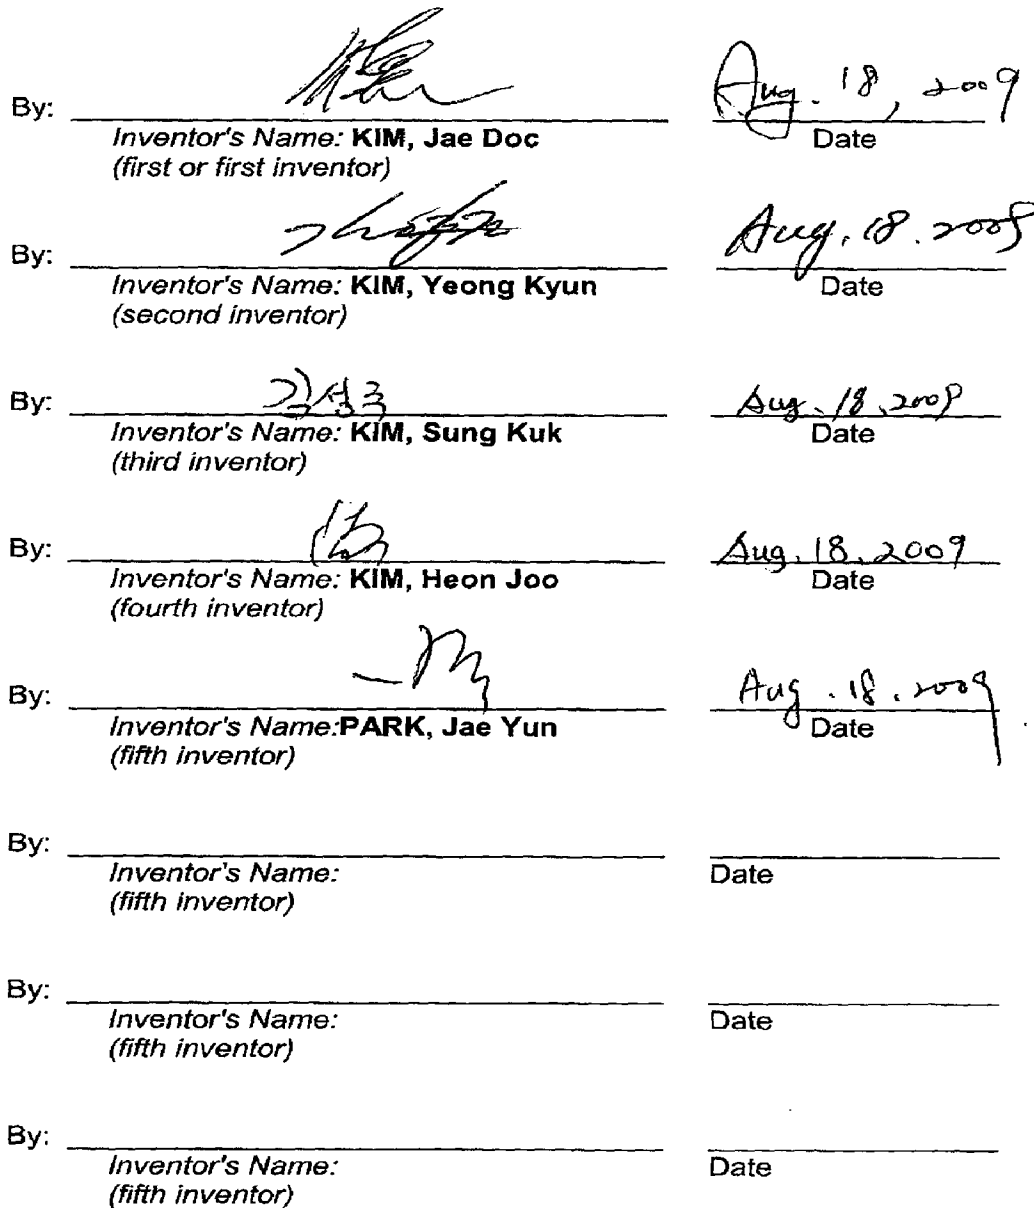 By: Aug. 18, 2009
Inventor's Name: KIM, Jae Doc Date
(first or first inventor)
By: Aug. 18. 2009
Inventor's Name: KIM, Yeong Kyun Date
(second inventor)
By: 김성국 Aug. 18. 2009
Inventor's Name: KIM, Sung Kuk Date
(third inventor)
By: Aug. 18. 2009
Inventor's Name: KIM, Heon Joo Date
(fourth inventor)
By: Aug. 18. 2009
Inventor's Name:PARK, Jae Yun Date
(fifth inventor)
By:
Inventor's Name: Date
(fifth inventor)
By:
Inventor's Name: Date
(fifth inventor)
By:
Inventor's Name: Date
(fifth inventor)